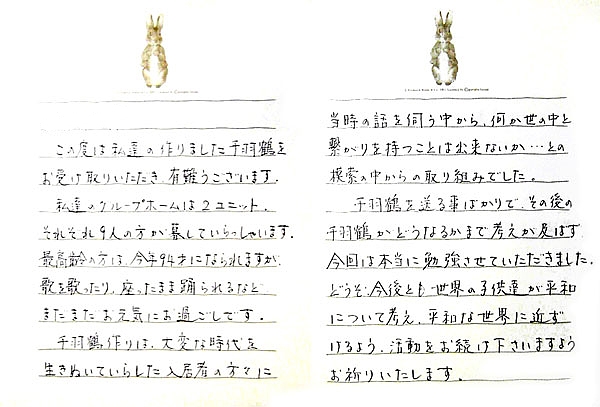 この度は私達の作りました千羽鶴を
お受け取りいただき、有難うございます。
私達のグループホームは2ユニット、
それぞれ9人の方が暮していらっしゃいます。
最高齢の方は、今年94才になられますが
歌を歌ったり、座ったまま踊られるなど
まだまだお元気にお過ごしです。
千羽鶴作りは、大変な時代を
生きぬいていらした入居者の方々に
当時の話を伺う中から、何か世の中と
繋がりを持つことは出来ないか…との
模索の中からの取り組みでした。
千羽鶴を送る事ばかりで、その後の
千羽鶴がどうなるかまで考えが及ばず
今回は本当に勉強させていただきました。
どうぞ、今後とも世界の子供達が平和
について考え、平和な世界に近ず
けるよう、活動をお続け下さいますよう
お祈りいたします。